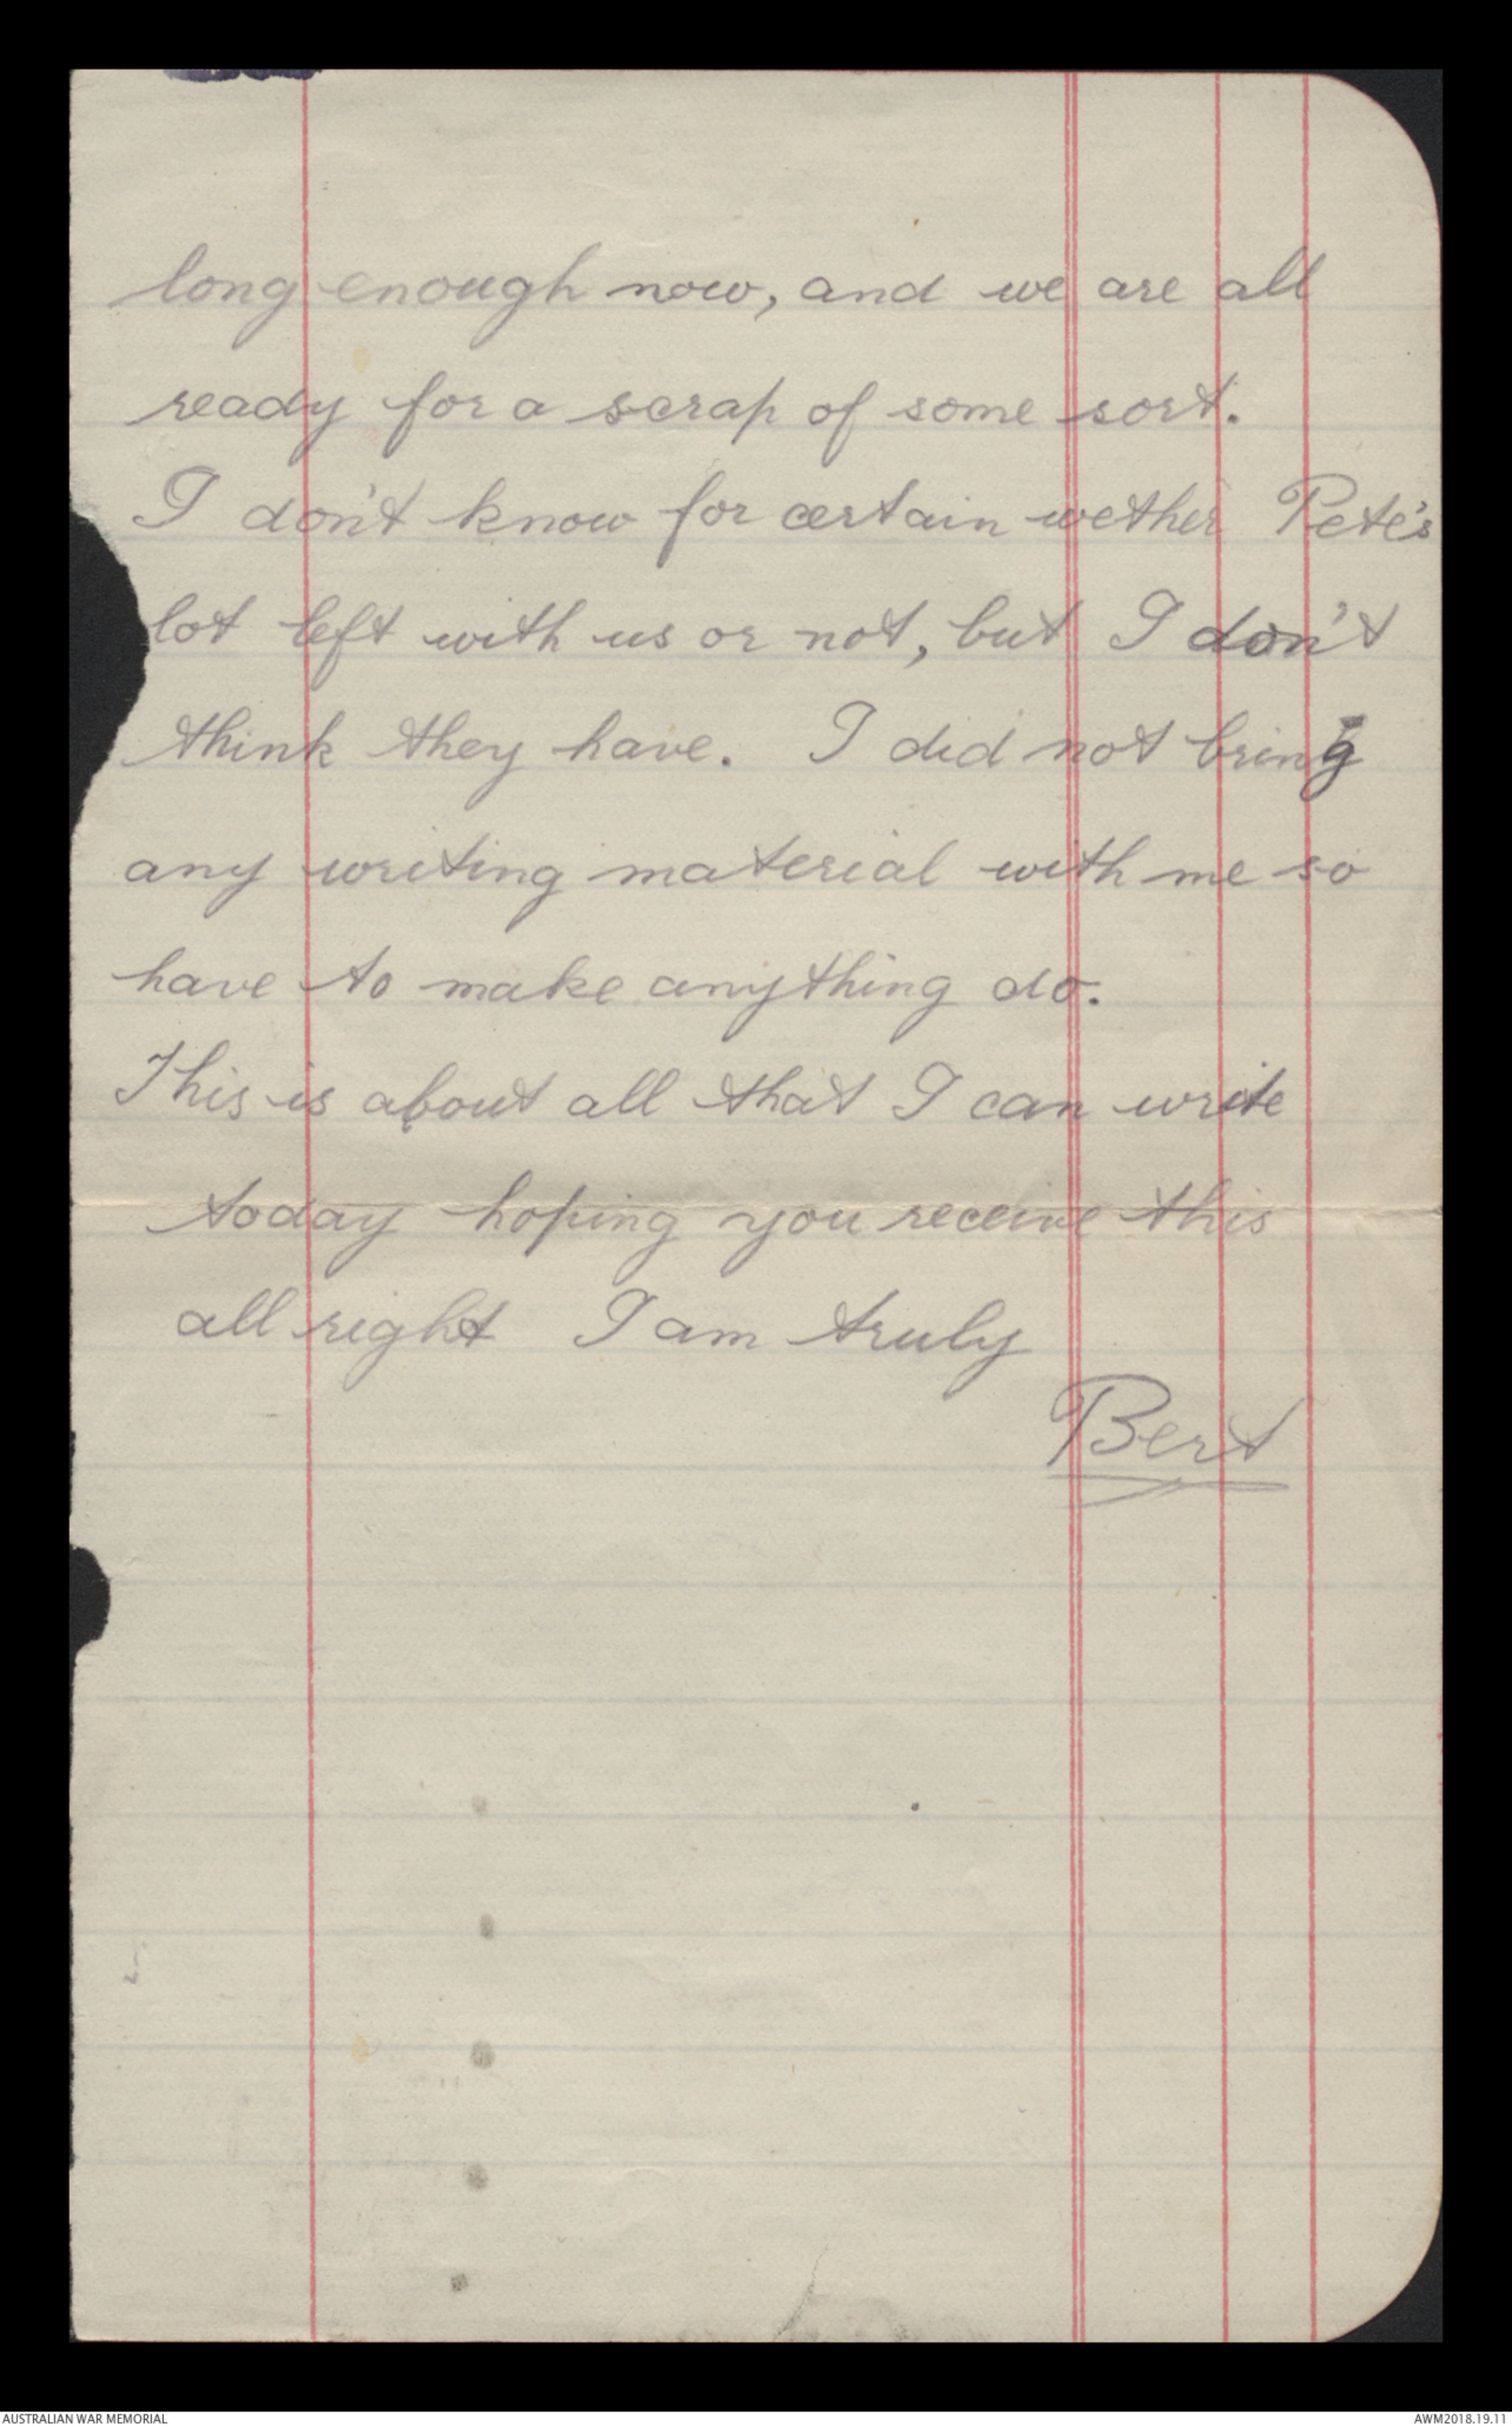 long enough now, and we are all
ready for a scrap of some sort.
I don't know for certain wether Pete's
lot left with us or not, but I don't
think they have. I did not bring
any writing material with me so
have to make anything do.
This is about all that I can write
today hoping you receive this
all right I am truly
Bert
AUSTRALIAN WAR MEMORIAL
AWM2018.19.11